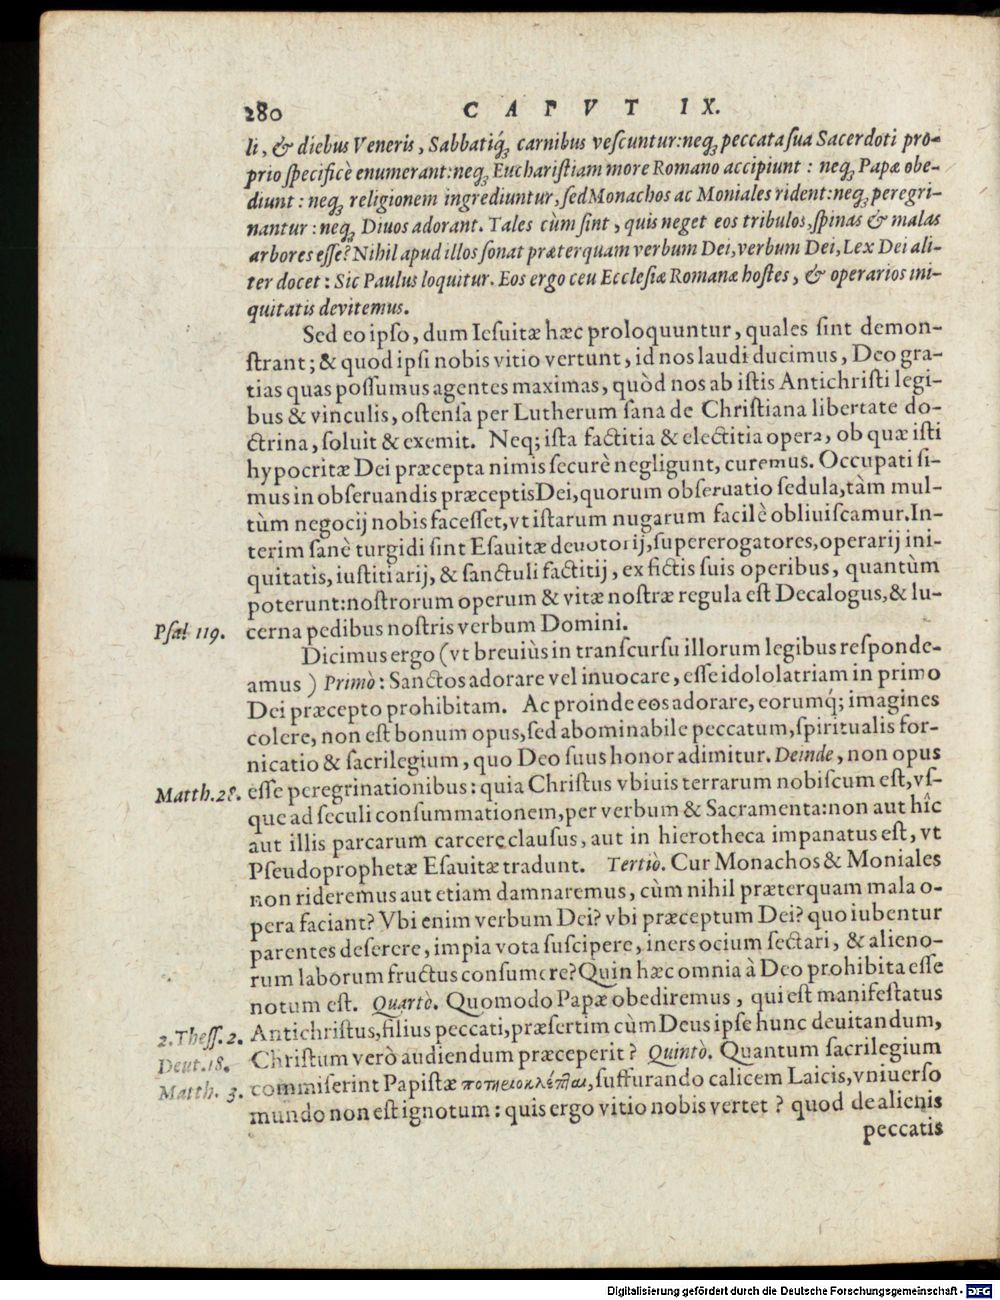 280 CAPVT IX.
li, & diebus Veneris, Sabbatiq́ꝫ carnibus veſcuntur:neqꝫ peccata ſua Sacerdoti pro-
prio ſpecificè enumerant:neqꝫ Euchariſtiam more Romano accipiunt : neqꝫ Papæ obe-
diunt : neqꝫ religionem ingrediuntur, ſed Monachos ac Moniales rident:neqꝫ peregri-
nantur : neqꝫ Diuos adorant. Tales cùm ſint, quis neget eos tribulos, ſpinas & malas
arbores eſſe? Nihil apud illos ſonat præterquam verbum Dei, verbum Dei, Lex Dei ali-
ter docet : Sic Paulus loquitur. Eos ergo ceu Eccleſiæ Romanæ hoſtes, & operarios ini-
quitatis devitemus.
Sed eo ipſo, dum Ieſuitæ hæc proloquuntur, quales ſint demon-
ſtrant; & quod ipſi nobis vitio vertunt, id nos laudi ducimus, Deo gra-
tias quas poſſumus agentes maximas, quòd nos ab iſtis Antichriſti legi-
bus & vinculis, oſtenſa per Lutherum ſana de Chriſtiana libertate do-
ctrina, ſoluit & exemit. Neq; iſta factitia & electitia opera, ob quæ iſti
hypocritæ Dei præcepta nimis ſecurè negligunt, curemus. Occupati ſi-
mus in obſeruandis præceptis Dei, quorum obſeruatio ſedula, tàm mul-
tùm negocij nobis faceſſet, vt iſtarum nugarum facilè obliuiſcamur. In-
terim ſanè turgidi ſint Eſauitæ deuotorij, ſupererogatores, operarij ini-
quitatis, iuſtitiarij, & ſanctuli factitij, ex fictis ſuis operibus, quantùm
poterunt:noſtrorum operum & vitæ noſtræ regula eſt Decalogus, & lu-
Pſal 119. cerna pedibus noſtris verbum Domini.
Dicimus ergo (vt breuiùs in tranſcurſu illorum legibus reſponde-
amus ) Primò : Sanctos adorare vel inuocare, eſſe idololatriam in primo
Dei præcepto prohibitam. Ac proinde eos adorare, eorumq́; imagines
colere, non eſt bonum opus, ſed abominabile peccatum, ſpiritualis for-
nicatio & ſacrilegium, quo Deo ſuus honor adimitur. Deinde, non opus
Matth. 28. eſſe peregrinationibus : quia Chriſtus vbiuis terrarum nobiſcum eſt, vſ-
que ad ſeculi conſummationem, per verbum & Sacramenta:non aut hîc
aut illis parcarum carcere clauſus, aut in hierotheca impanatus eſt, vt
Pſeudoprophetæ Eſauitæ tradunt. Tertiò. Cur Monachos & Moniales
non rideremus aut etiam damnaremus, cùm nihil præterquam mala o-
pera faciant? Vbi enim verbum Dei? vbi præceptum Dei? quo iubentur
parentes deſerere, impia vota ſuſcipere, iners ocium ſectari, & alieno-
rum laborum fructus conſumere? Quin hæc omnia à Deo prohibita eſſe
notum eſt. Quartò. Quomodo Papæ obediremus, qui eſt manifeſtatus
2. Theſſ. 2. Antichriſtus, filius peccati, præſertim cùm Deus ipſe hunc deuitandum,
Deut. 18. Chriſtum verò audiendum præceperit? Quintò. Quantum ſacrilegium
Matth. 3. commiſerint Papiſtæ ποτηριοκλέπται, ſuffurando calicem Laicis, vniuerſo
mundo non eſt ignotum : quis ergo vitio nobis vertet ? quod de alienis
peccatis
Digitalisierung gefördert durch die Deutsche Forschungsgemeinschaft - DFG